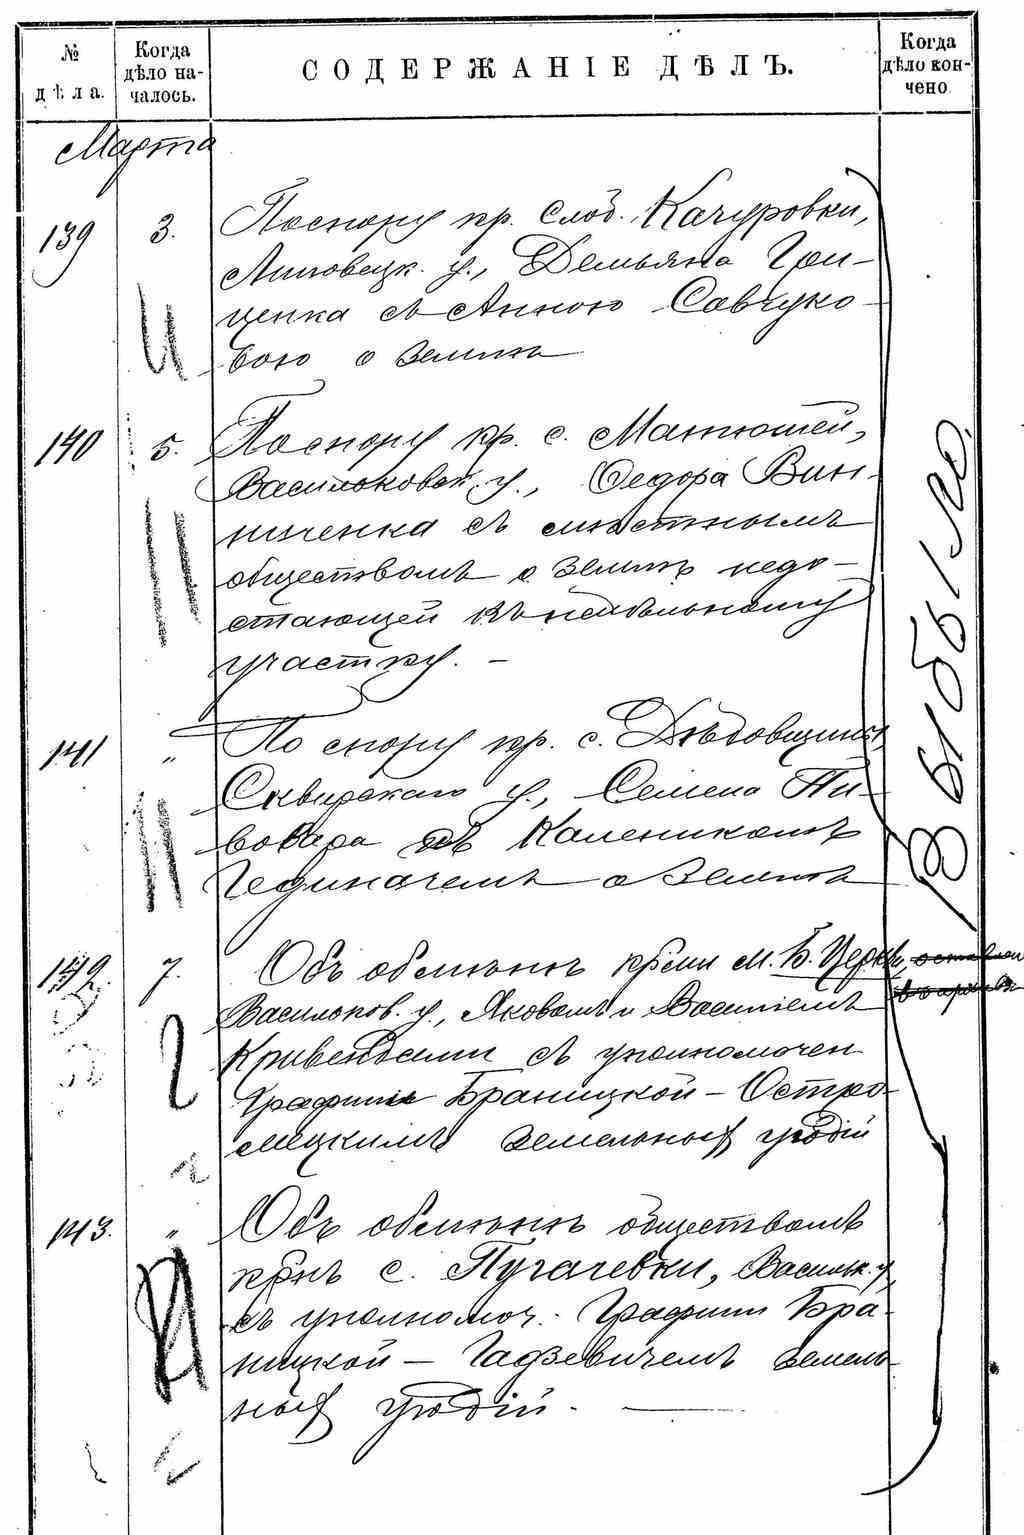 № дѣла.
Когда дѣло началось.
СОДЕРЖАНІЕ ДѢЛЪ.
Когда дѣло кончено
Марта
139 3. По спору кр. Слоб. Качуровки,
Липовецк. у., Демьяна Гри-
ценка съ Анною Савчуко-
вою о землѣ
140 5. По спору кр. с. Матюшей,
Васильковск. у., Ѳедора Вин-
ниченка съ мѣстнымъ
обществомъ о землѣ недо-
стающей къ надѣльному
участку. –
141 „ По спору кр. с. Дѣдовщины,
Сквирскаго у., Семена Пи-
вовара съ Калеником
Гединачемъ о землѣ
142 7. Объ обмѣнѣ кр-ми м. Б. Церкви,
Васильков. у., Яковомъ и Василіемъ
Кривенками съ уполномочен
Графини Браницкой – Остро-
мецкимъ земельных угодій
143. „ Объ обмѣнѣ обществомъ
кр-нъ с. Пугачевки, Васильк. у,
съ уполномоч. Графини Бра-
ницкой – Гадзевичемъ земель-
ных угодій. —
Выбыло.